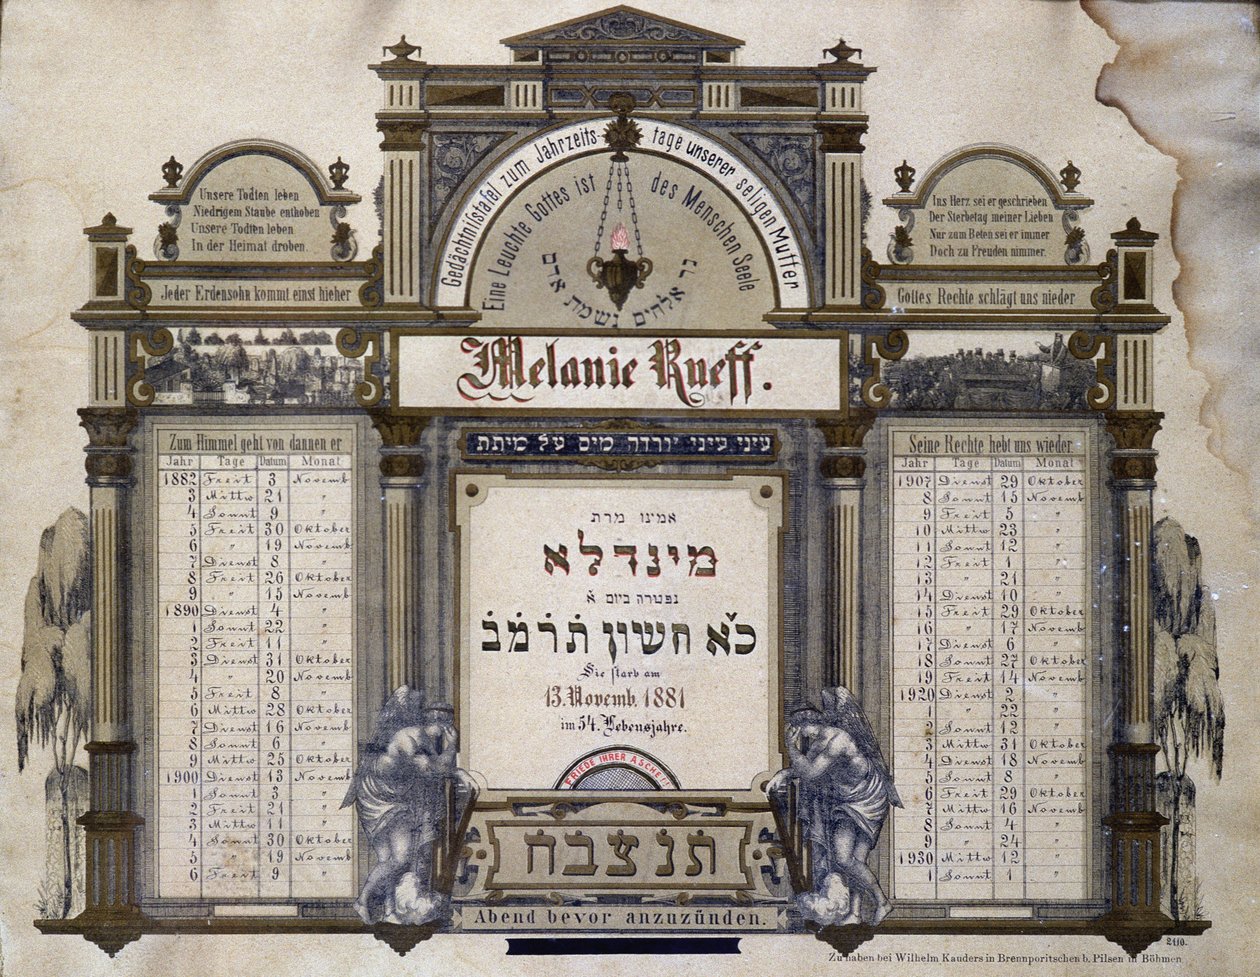 Gedächtnißtafel zum Jahrzeits-tage unserer seligen Mutter
Eine Leuchte Gottes ist des Menschen Seele
נר אלהים נשמת אדם
Unsere Todten leben
Niedrigem Staube enthoben
Unsere Todten leben
In der Heimat droben.
Jeder Erdensohn kommt einst hieher
Ins Herz sei er geschrieben
Der Sterbetag meiner Lieben
Nur zum Beten sei er immer
Doch zu Freuden nimmer.
Gottes Rechte schlägt uns nieder
Melanie Rueff.
עיני עיני יורדה מים על מיתת
Zum Himmel geht von dannen er
Jahr Tage Datum Monat
1882 Freit 3 Novemb
3 Mittw 21 "
4 Sonnt 9 "
5 Freit 30 Oktober
6 " 19 Novemb
7 Dienst 8 "
8 Freit 26 Oktober
9 " 15 Novemb
1890 Dienst 4 "
1 Sonnt 22 "
2 Freit 11 "
3 Dienst 31 Oktober
4 " 20 Novemb
5 Freit 8 "
6 Mittw 28 Oktober
7 Dienst 16 Novemb
8 Sonnt 6 "
9 Mittw 25 Oktober
1900 Dienst 13 Novemb
1 Sonnt 3 "
2 Freit 21 "
3 Mittw 11 "
4 Sonnt 30 Oktober
5 " 19 Novemb
6 Freit 9 "
אמינו מרת
מינדלא
נפטרה ביום א
כ"א חשון תרמב
Sie starb am
13. Novemb. 1881
im 54. Lebensjahre.
FRIEDE IHRER ASCHE!
תנצבה
Abend bevor anzuzünden.
Seine Rechte hebt uns wieder.
Jahr Tage Datum Monat
1907 Dienst 29 Oktober
8 Sonnt 15 Novemb
9 Freit 5 "
10 Mittw 23 "
11 Sonnt 12 "
12 Freit 1 "
13 " 21 "
14 Dienst 10 "
15 Freit 29 Oktober
16 " 17 Novemb
17 Dienst 6 "
18 Sonnt 27 Oktober
19 Freit 14 Novemb
1920 Dienst 2 "
1 " 22 "
2 Sonnt 12 "
3 Mittw 31 Oktober
4 Dienst 18 Novemb
5 Sonnt 8 "
6 Freit 29 Oktober
7 Mittw 16 Novemb
8 Sonnt 4 "
9 " 24 "
1930 Mittw 12 "
1 Sonnt 1 "
2110.
Zu haben bei Wilhelm Kauders in Brennporitschen b. Pilsen in Böhmen